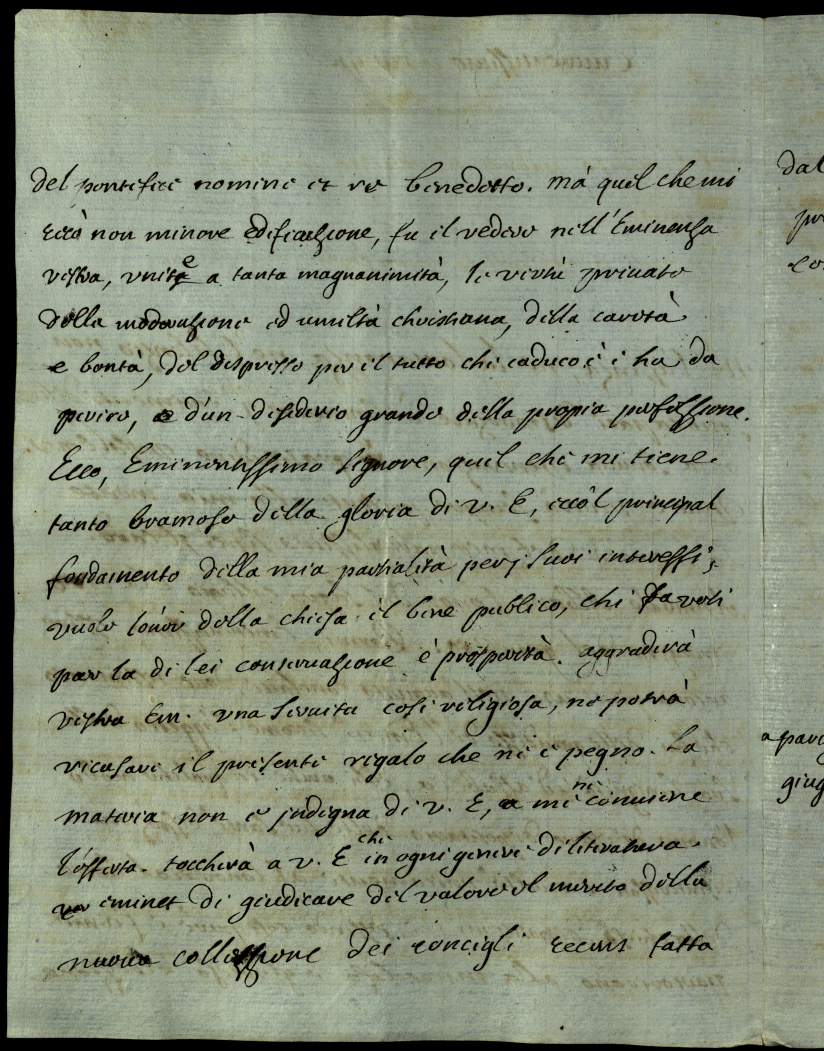 del pontefice nomine et re benedetto. mà quel che mi
recò non minore edificazione, fu il vedere nell'Eminenza
vestra, unite a tanta magnanimità, le virtù private
della moderazione ed umiltà christiana, della carità
e bontà, del dispresso per il tutto che caduco è i ha da
perire, e d'un desiderio grande della propria perfessione.
Ecco, Eminentissimo Signore, quel che mi tiene
tanto bramoso della gloria di v. E, ecco'l principal
fondamento della mia parzialità per j suoi interessi;
vuole l'onor della chiesa il bene publico, che fa voti
par la di lei conservazione è prosperità. aggraderà
vestra Em. una servitu così religiosa, ne potrà
ricusare il presente regalo che ne è pegno. La
materia non e jndigna di v. E, e me ne conviene
l'offerta. toccherà a v. E che in ogni genere di literatura
eminet di giudicare del valore el merito della
nuova collessione dei concigli recens fatta
dal
pr
co
a pari
giug